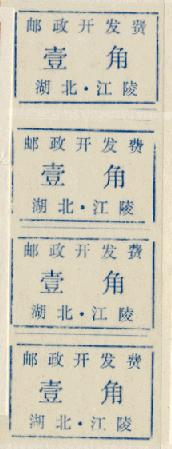 邮政开发费
壹角
湖北·江陵
邮政开发费
壹角
湖北·江陵
邮政开发费
壹角
湖北·江陵
邮政开发费
壹角
湖北·江陵